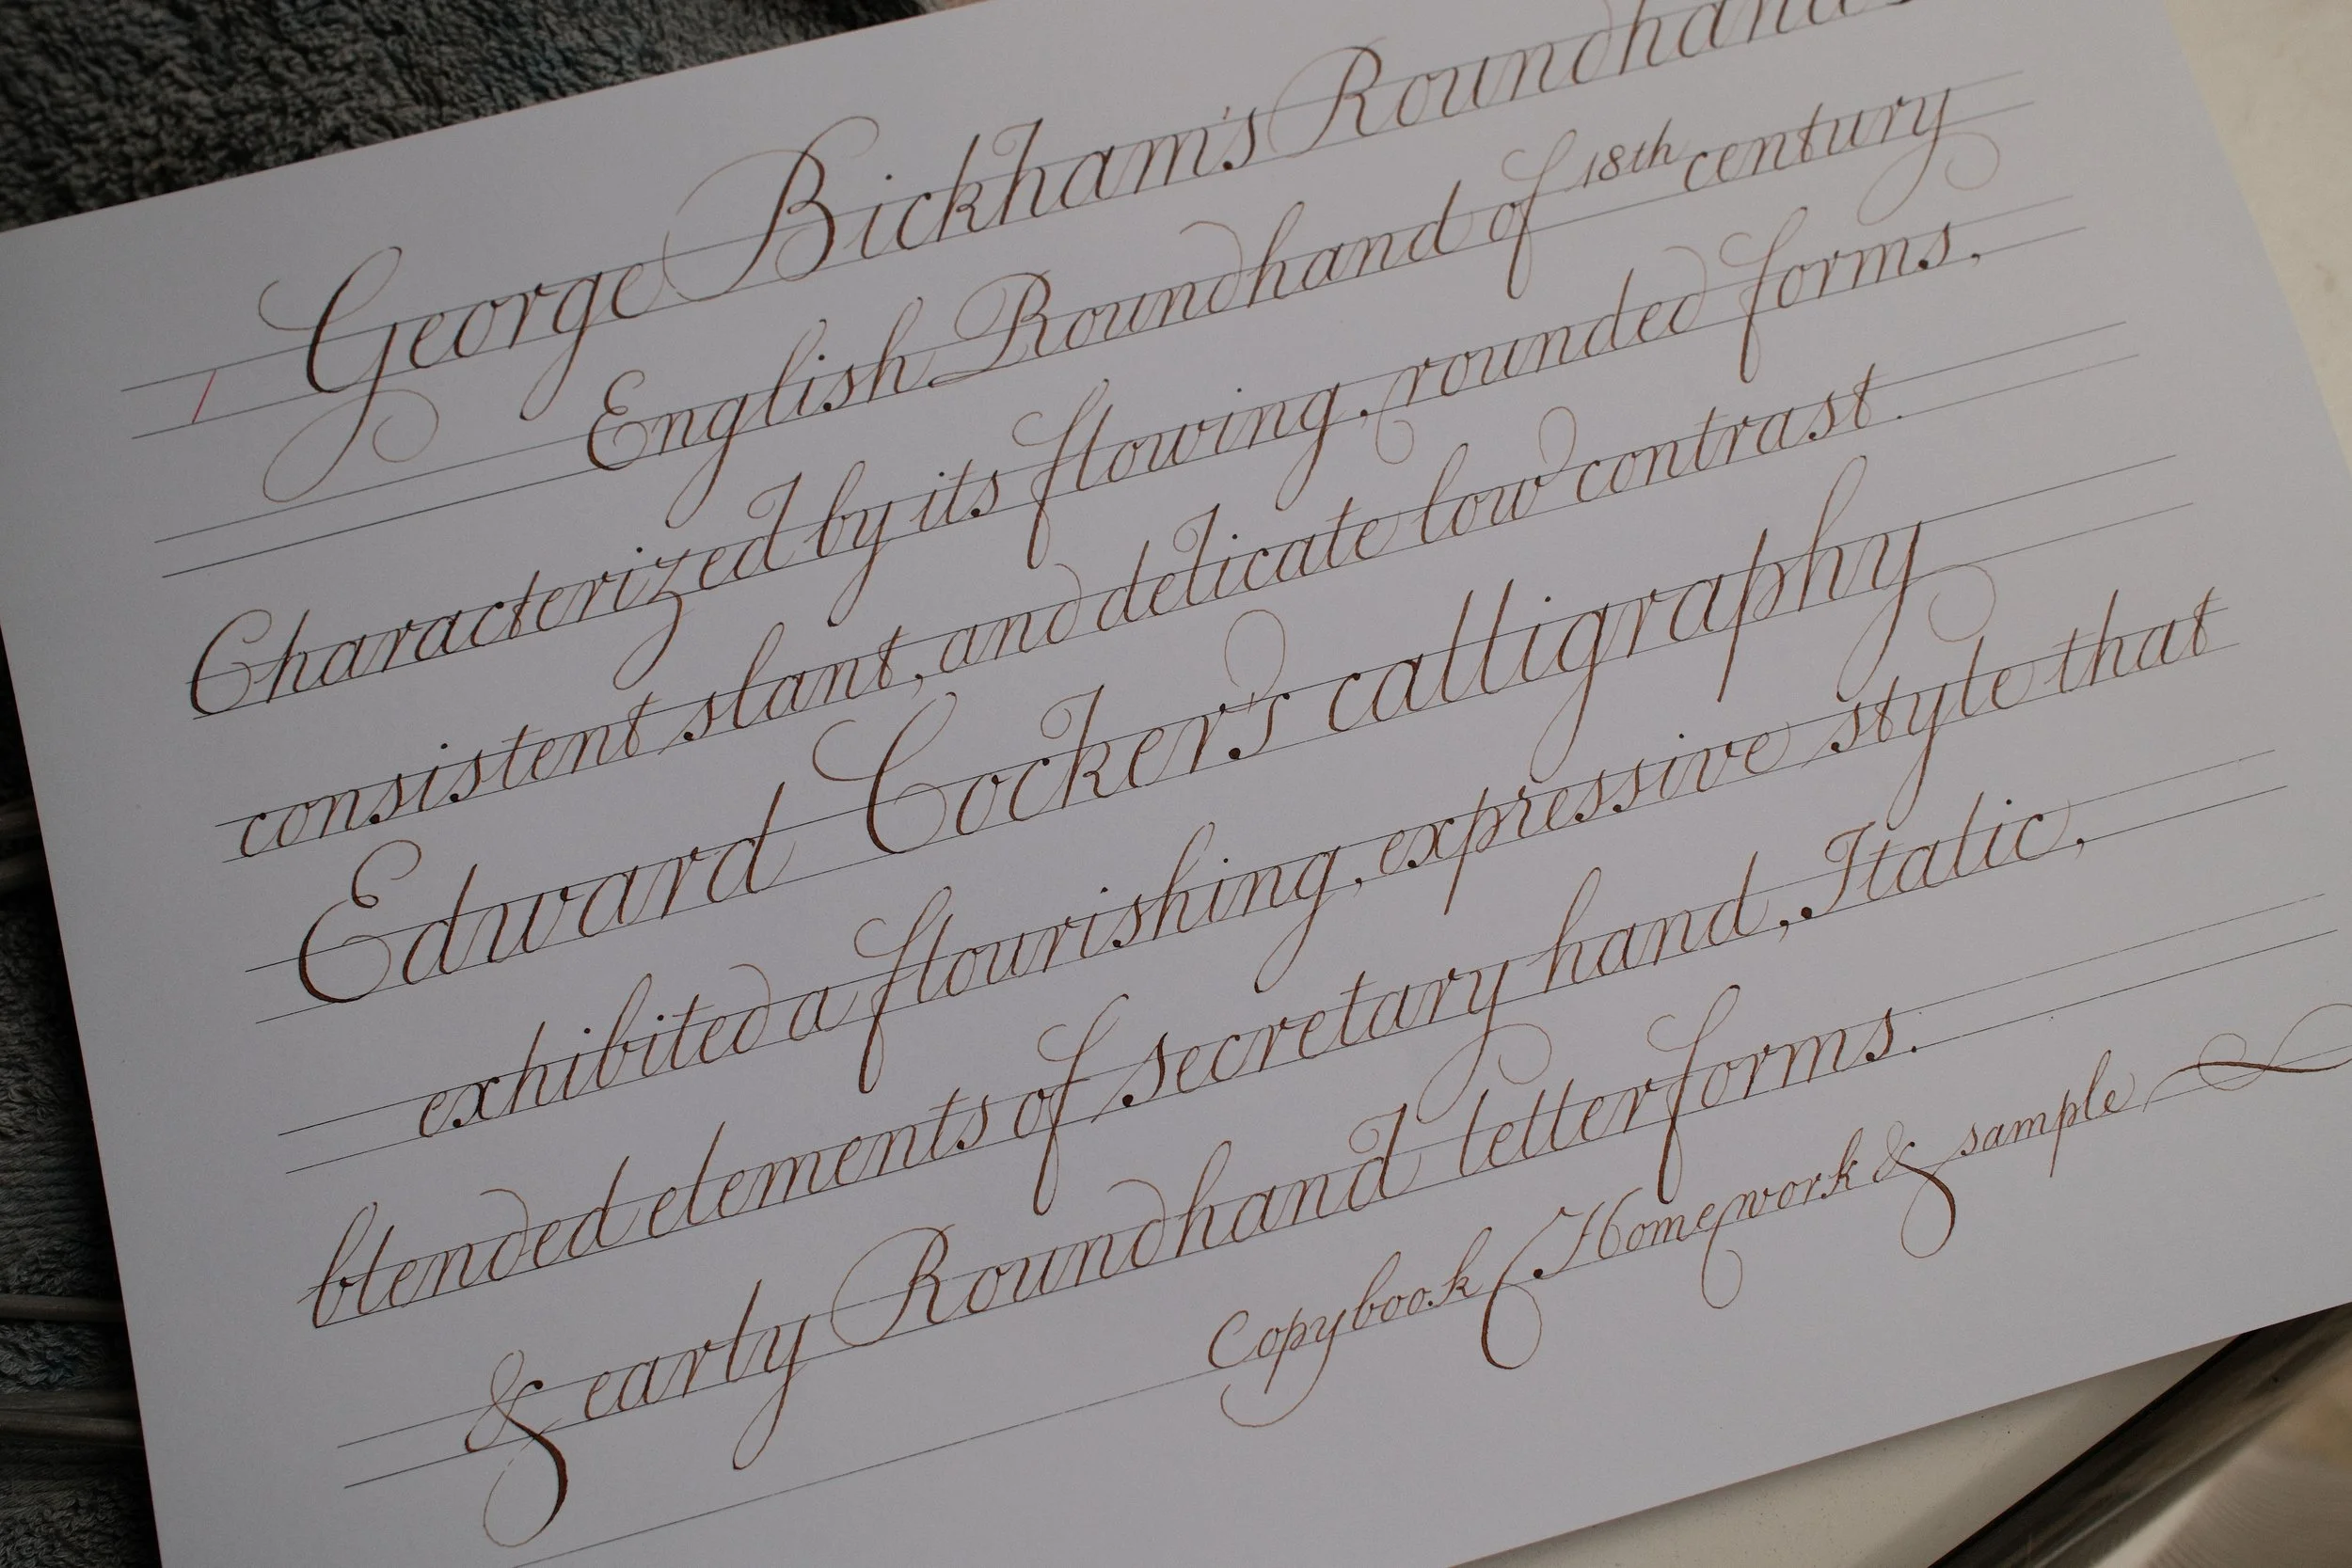 George Bickham's Roundhand
English Roundhand of 18th century
Characterized by its flowing, rounded forms,
consistent slant, and delicate low contrast.
Edward Cocker's calligraphy
exhibited a flourishing, expressive style that
blended elements of secretary hand, Italic,
& early Roundhand letterforms.
Copybook Homework & sample